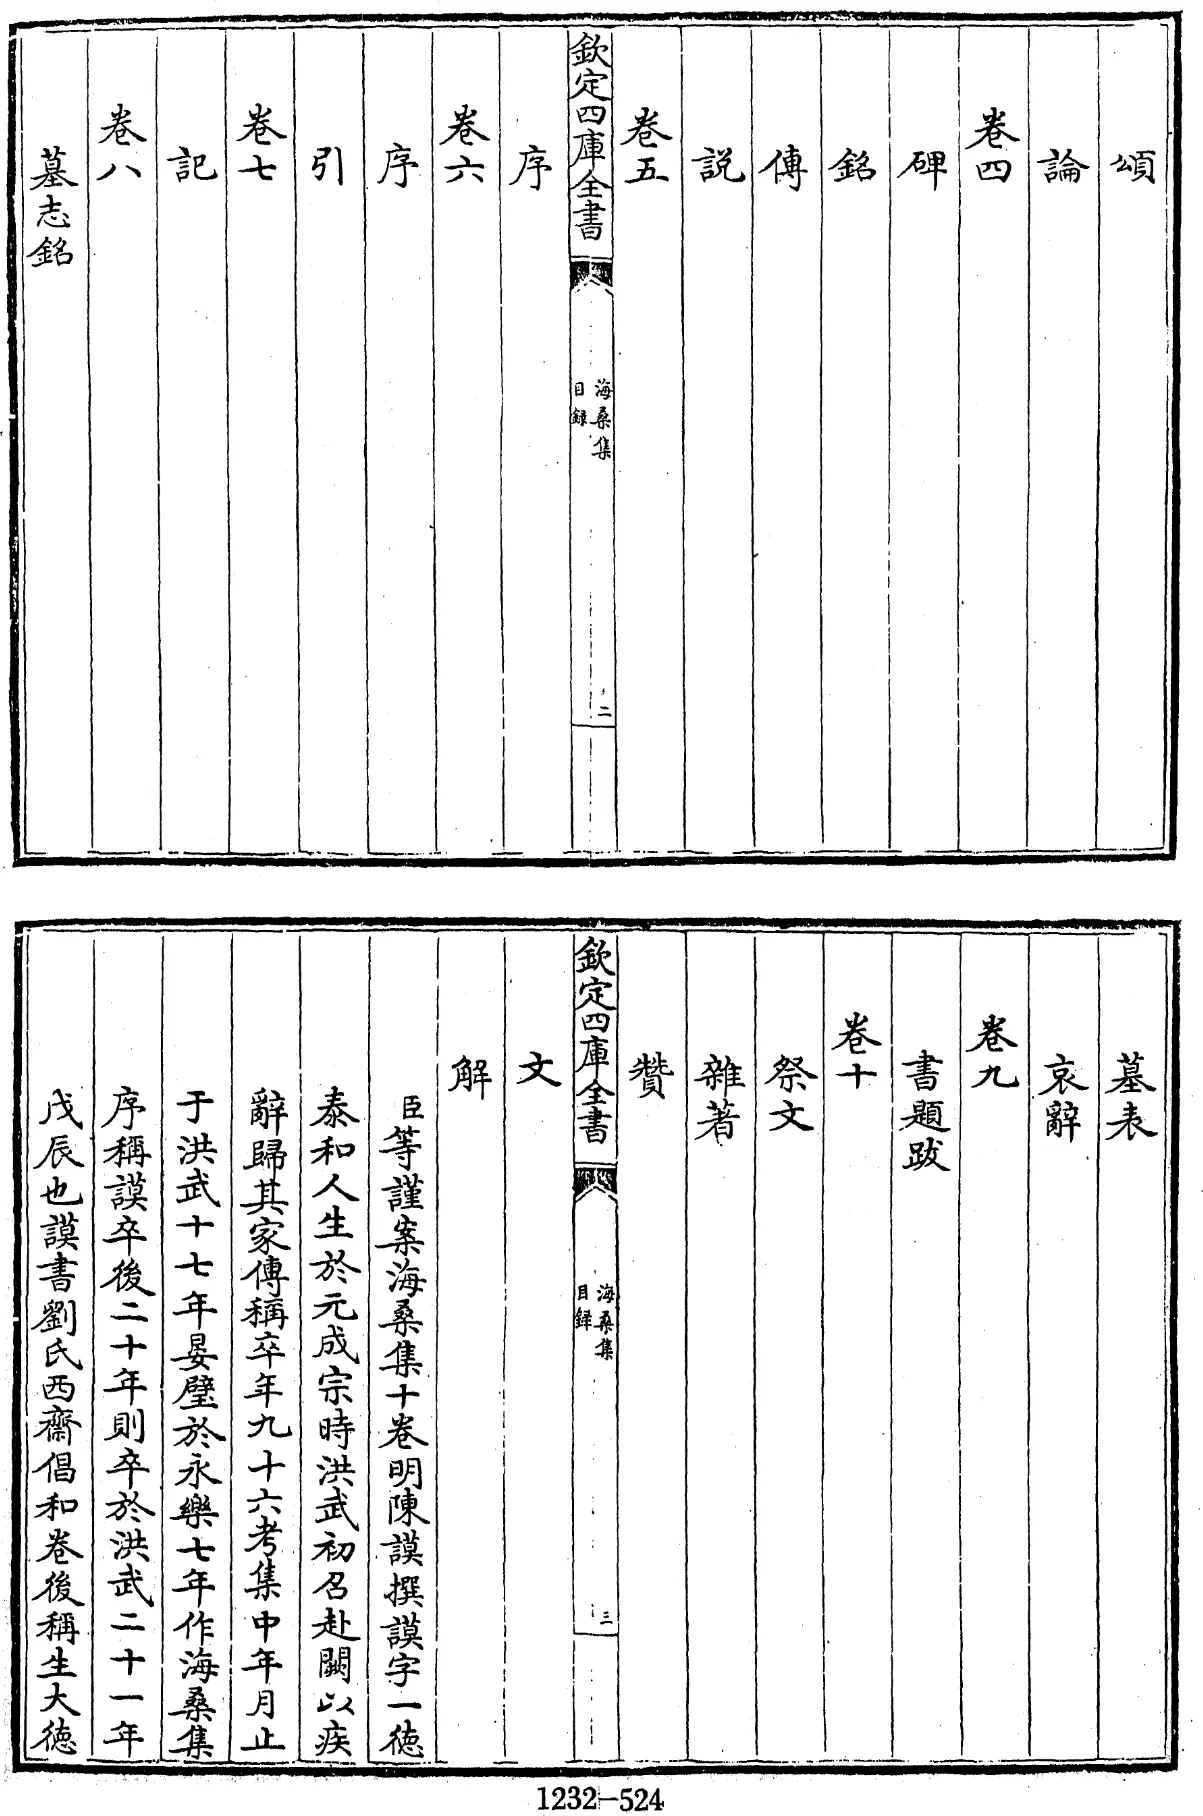 頌
論
卷四
碑
銘
傳
説
卷五
欽定四庫全書
海桑集
目錄
二
序
卷六
序
引
卷七
記
卷八
墓志銘
墓表
哀辭
卷九
書題跋
卷十
祭文
雜著
贊
欽定四庫全書
海桑集
目錄
三
文
解
臣等謹案海桑集十卷明陳謨撰謨字一德
泰和人生於元成宗時洪武初召赴闕以疾
辭歸其家傳稱卒年九十六考集中年月止
于洪武十七年晏璧於永樂七年作海桑集
序稱謨卒後二十年則卒於洪武二十一年
戊辰也謨書劉氏西齋倡和卷後稱生大德
1232-524